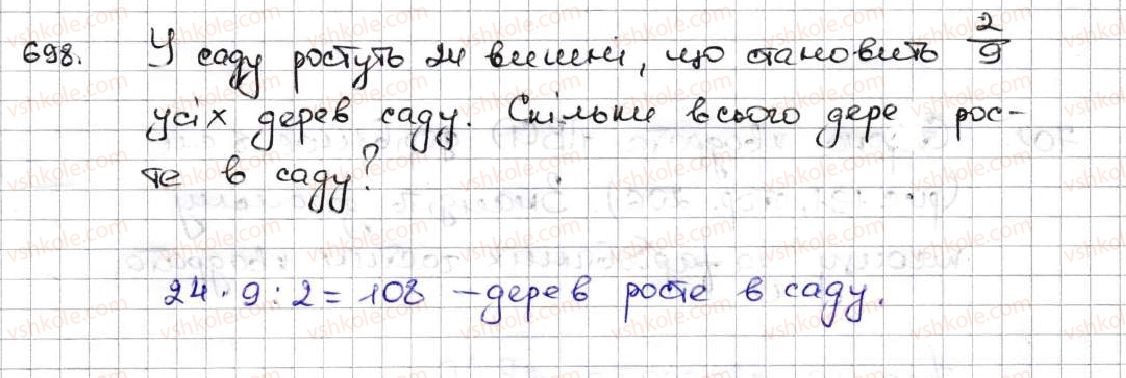 698. У саду ростуть 24 вишні, що становить 2/9
усіх дерев саду. Скільки всього дере рос-
те в саду?
24 · 9 : 2 = 108 – дерев росте в саду.